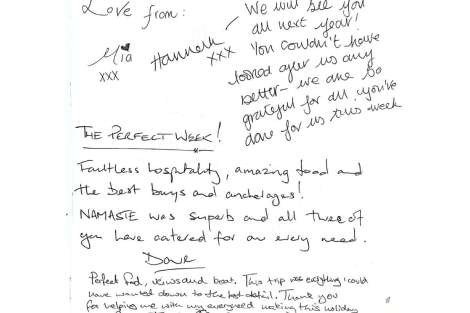 Love from:
Mia
xxx
Hannah
xxx
We will see you
all next year!
You couldn't have
looked after us any
better - we are so
grateful for all you've
done for us this week
THE PERFECT WEEK!
Faultless hospitality, amazing food and
the best bays and anchorages!
NAMASTE was superb and all three of
you have catered for our every need.
Dave
Perfect food, views and boat. This trip was everything I could
have wanted down to the last detail. Thank you
for helping me with my making this holiday